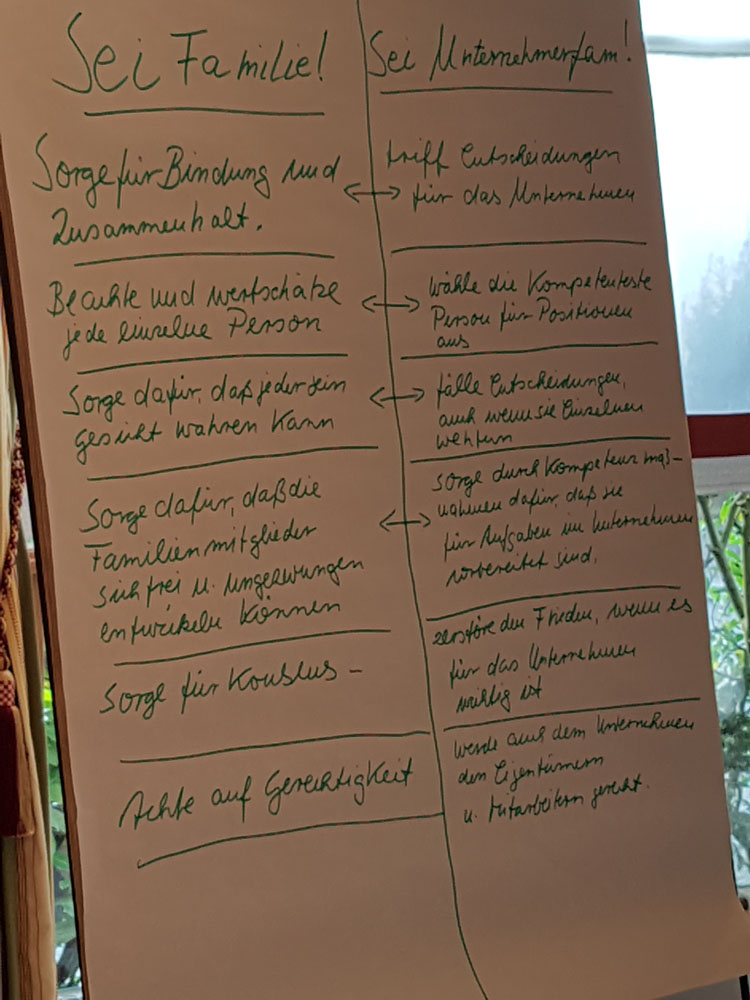 Sei Familie!
Sorge für Bindung und
Zusammenhalt.
Beachte und wertschätze
jede einzelne Person
Sorge dafür, daß jeder sein
gesicht wahren kann
Sorge dafür, daß die
Familienmitglieder
sich frei u. ungezwungen
entwickeln können
Sorge für Konsens -
Achte auf Gerechtigkeit
Sei Unternehmerfam!
triff Entscheidungen
für das Unternehmen
wähle die Kompetenteste
Person für Positionen
aus
fälle Entscheidungen,
auch wenn sie Einzelnen
wehtun
sorge durch Kompetenzmaß-
nahmen dafür, daß sie
für Aufgaben im Unternehmen
vorbereitet sind.
zerstöre den Frieden, wenn es
für das Unternehmen
wichtig ist
werde auch dem Unternehmen
den Eigentümern
u. Mitarbeitern gerecht.